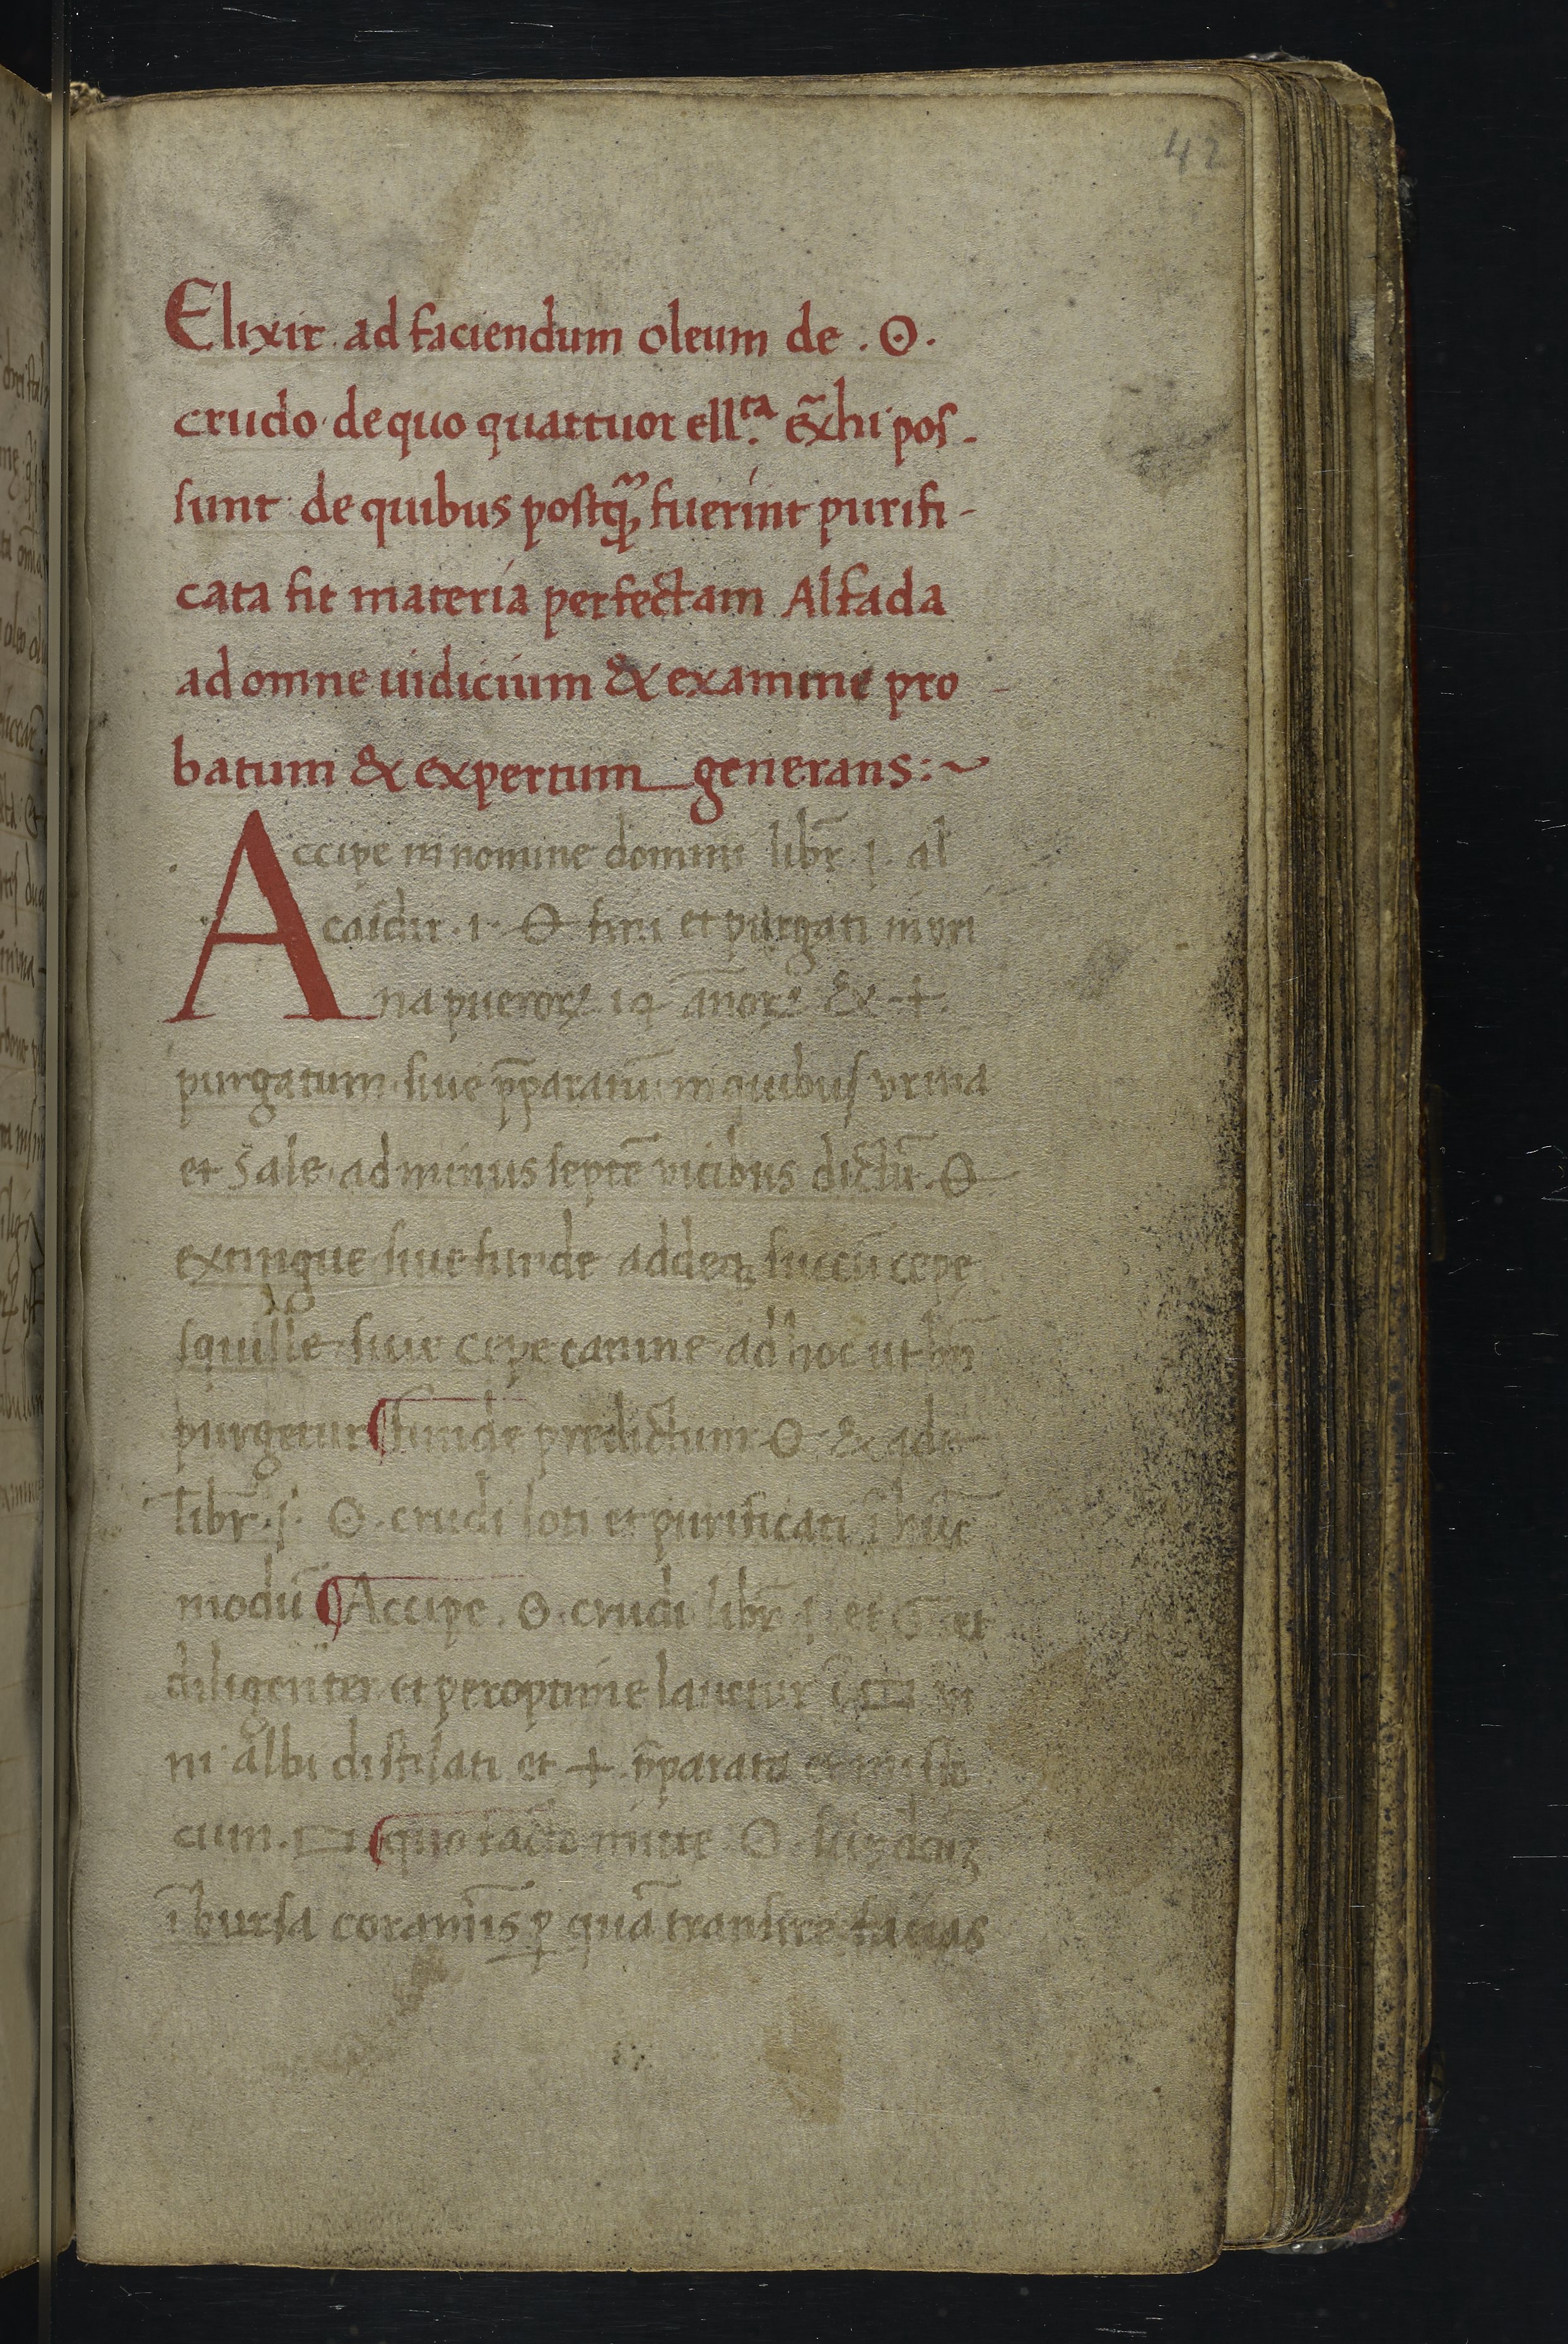 42
Elixir ad faciendum oleum de . ʘ.
crudo de quo quattuor ell.ta &̃xhi pos-
sunt de quibus postq̃ fuerint purifi-
cata fit materia perfectam Alfada
ad omne uidicium & examine pro
batum & expertum generans:~
Accipe in nomine domini libr̃ .j. al
caidir .i. ʘ fini et purgati in vri
na pueroꝝ 12 ãnoꝝ & +
purgatum siue p̃paratũ in quibus vrina
et Sale ad minus septẽ vicibus dictũ ʘ
extingue siue funde addeq; succũ cepe
squille siue cepe canine ad hoc ut bñ
purgetur funde predictum ʘ & ad
libr̃ .j. ʘ crudi loti et purificati ĩ hũc
modũ Accipe . ʘ . crudi libr̃ j et et
diligenter et peroptime lauetur ĩ □
ni albi distilati et + p̃parato
cum . □ quo facto mitte ʘ
ĩ bursa coraminis ꝑ quã transire facias